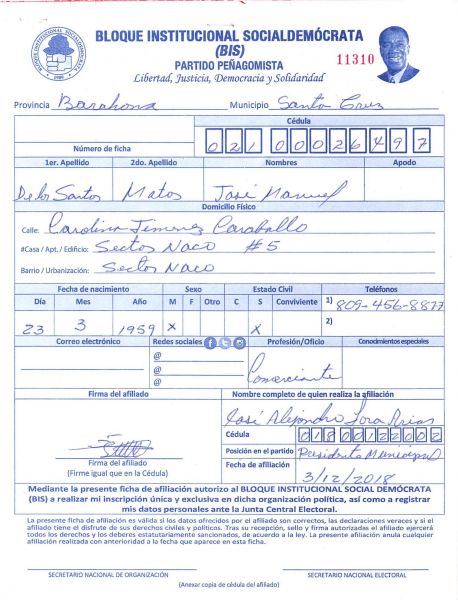 BLOQUE INSTITUCIONAL SOCIALDEMÓCRATA
(BIS)
PARTIDO PEÑAGOMISTA
Libertad, Justicia, Democracia y Solidaridad
11310
BLOQUE INSTITUCIONAL SOCIALDEMOCRATA
Provincia Barahona Municipio Santa Cruz
Cédula
Número de ficha 021 0002649 7
1er. Apellido 2do. Apellido Nombres Apodo
De los Santos Matos José Manuel
Domicilio Físico
Calle: Carolina Jimenez Caraballo
#Casa / Apt. / Edificio: Sector Naco #5
Barrio / Urbanización: Sector Naco
Fecha de nacimiento Sexo Estado Civil Teléfonos
Día Mes Año M F Otro C S Conviviente 1) 809-456-8877
23 3 1959 X X 2)
Correo electrónico Redes sociales Profesión/Oficio Conocimientos especiales
@
@
@
Comerciante
Firma del afiliado Nombre completo de quien realiza la afiliación
José Alejandro Lora Arias
Cédula 018 0012200 2
Posición en el partido Presidente Municipal
Fecha de afiliación 3/12/2018
Firma del afiliado
(Firme igual que en la Cédula)
Mediante la presente ficha de afiliación autorizo al BLOQUE INSTITUCIONAL SOCIAL DEMÓCRATA
(BIS) a realizar mi inscripción única y exclusiva en dicha organización política, así como a registrar
mis datos personales ante la Junta Central Electoral.
La presente ficha de afiliación es válida si los datos ofrecidos por el afiliado son correctos, las declaraciones veraces y si el
afiliado tiene el disfrute de sus derechos civiles y políticos. Tras su recepción, sello y firma autorizadas el afiliado ejercerá
todos los derechos y los deberes estatutariamente sancionados, de acuerdo a la ley. La presente afiliación anula cualquier
afiliación realizada con anterioridad a la fecha que aparece en esta ficha.
SECRETARIO NACIONAL DE ORGANIZACIÓN SECRETARIO NACIONAL ELECTORAL
(Anexar copia de cédula del afiliado)